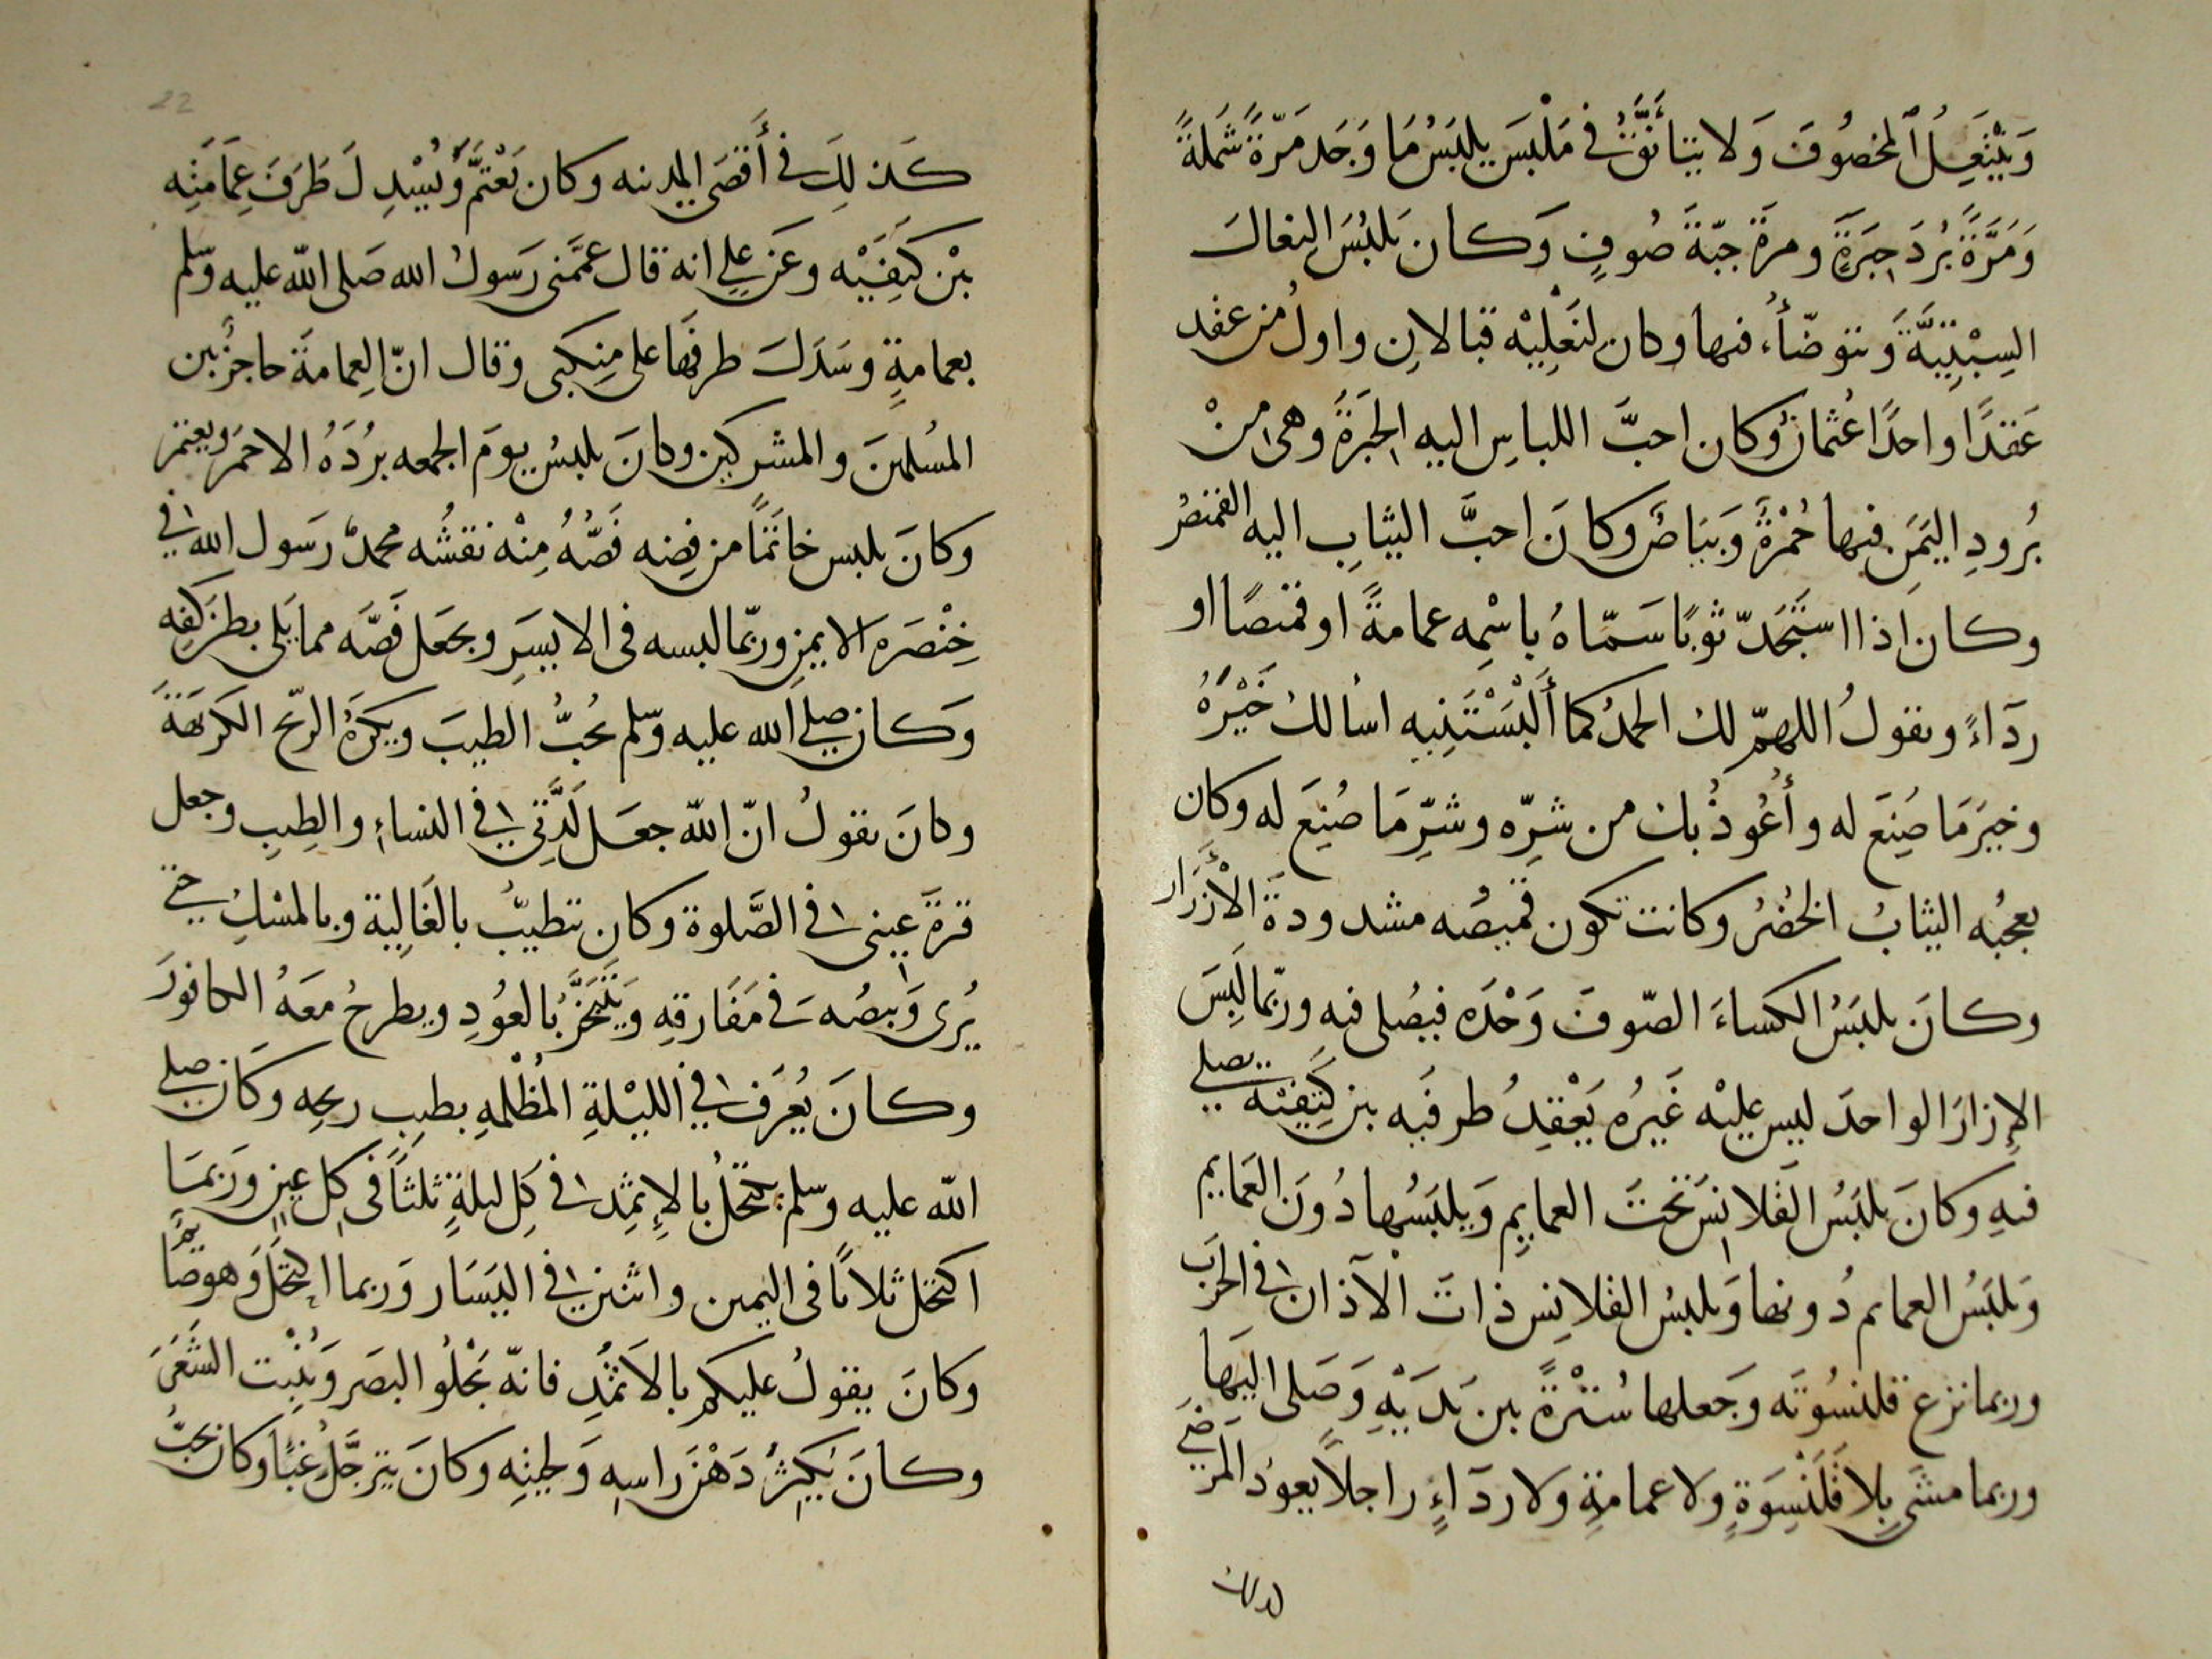 وَيَنْتَعِلُ المخصُوفَ وَلا يتأنَّقُ في مَلْبَسٍ يلبَسُ مَا وَجَد مَرّةً شَملَةً
وَمَرَّةً بُردَ حِبَرَةٍ ومرةً جبّةَ صُوفٍ وَكان يَلبَسُ النعالَ
السِبْتِيَّةَ وَيتوضّأُ فيها وكان لنعْلَيْه قبالانِ واولُ من عقد
عَقدًا واحدًا عُثمانُ وكان احبَّ اللباسِ اليهِ الحِبَرَةُ وهي مِنْ
بُرودِ اليَمَنِ فيها حُمْرَةٌ وَبَيَاضٌ وكانَ احبَّ الثيابِ اليه القميصُ
وكان اذا استَجَدّ ثوبًا سَمّاهُ باسْمِه عمامةً او قميصًا او
ردَاءً ويقولُ اللهمّ لك الحمدُ كما أَلْبَسْتَنِيهِ اسألكَ خَيْرَهُ
وخيرَ مَا صُنِعَ له وأَعُوذُ بك من شرِّه وشرِّ مَا صُنِعَ له وكان
يعجبُه الثيابُ الخُضرُ وكانت تكون قميصُه مشدودةَ الأَزْرَار
وكانَ يلبَسُ الكساءَ الصّوفَ وَحْدَه فيصُلي فيه وربّما لَبِسَ
الإزارَ الواحدَ ليس عليْه غَيرُه يَعْقِدُ طرفَيه بين كَتِفَيْه يصلي
فيهِ وكانَ يلبَسُ القَلانِسَ تحتَ العمايمِ وَيلبَسُها دُونَ العَمايم
وَيلبَسُ العمايم دُونها وَيلبسُ القلانِس ذاتَ الآذان في الحَرْب
وربما نزع قلنسُوتَه وَجَعلها سُتْرةً بين يَدَيْهِ وَصَلى اليَها
وربما مشَى بِلا قَلَنْسِوَةٍ ولا عمامةٍ ولا ردَاءٍ راجلاً يعودُ المَرْضَى
كذلك
22
كَذلِكَ في أَقصَى المدينه وكان يَعْتَمُّ وَيُسْدِلَ طَرَفَ عِمَامَتِه
بيْن كَتِفَيْه وعَن علي انه قال عمَّمَني رَسولُ الله صَلى اللّه عليه وسّلم
بعمامةٍ وسَدَلَ طرفَها على مِنكبي وقال انّ العِمامةَ حاجزٌ بين
المسُلمينَ والمشركين وكانَ يلبسُ يومَ الجمعه بُردَهُ الاحمَر ويعتمّ
وكانَ يلبس خاتَمًا من فِضه فَصُّهُ مِنْه نقشُه محمدٌ رَسول الله في
خِنْصَره الايمن وربّما لبسه في الايسَرِ ويجعَل فَصَّه مما يَلي بطن كَفِه
وَكان صلى الله عليه وسّلم يُحبُّ الطيبَ ويَكرَهُ الرّيح الكَرِيهَةَ
وكانَ يقولُ انّ اللّه جعَل لَذَّتي في النساءِ والطِيبِ وجعل
قرةَ عيني في الصَّلوة وكان يتطيّبُ بالغَالِية وبالمسْكِ حتى
يُرى وَبيصُه في مَفَارقِهِ وَيَتَبَخَّرُ بالعُودِ ويطرحُ معَهُ الكافورَ
وكانَ يُعرَفُ في الليْلةِ المُظْلمهِ بطيبِ ريحِه وكان صلى
اللّه عليه وسلم يكتحلُ بالإثمِدِ في كِل ليلةٍ ثلثًا في كِل عينٍ وَربمَا
اكتحَل ثلاثًا في اليمين واثنين في اليَسَار وَربما اكتحَلَ وَهو صَايمٌ
وكانَ يقولُ عليكم بالاثمُدِ فانّه يجْلُو البصَر وَيُنْبِت الشَّعَرَ
وكانَ يُكِثرُ دَهْنَ راسِه وَلحيتِه وكانَ يترجَّلُ غبًا وكان يحبُّ